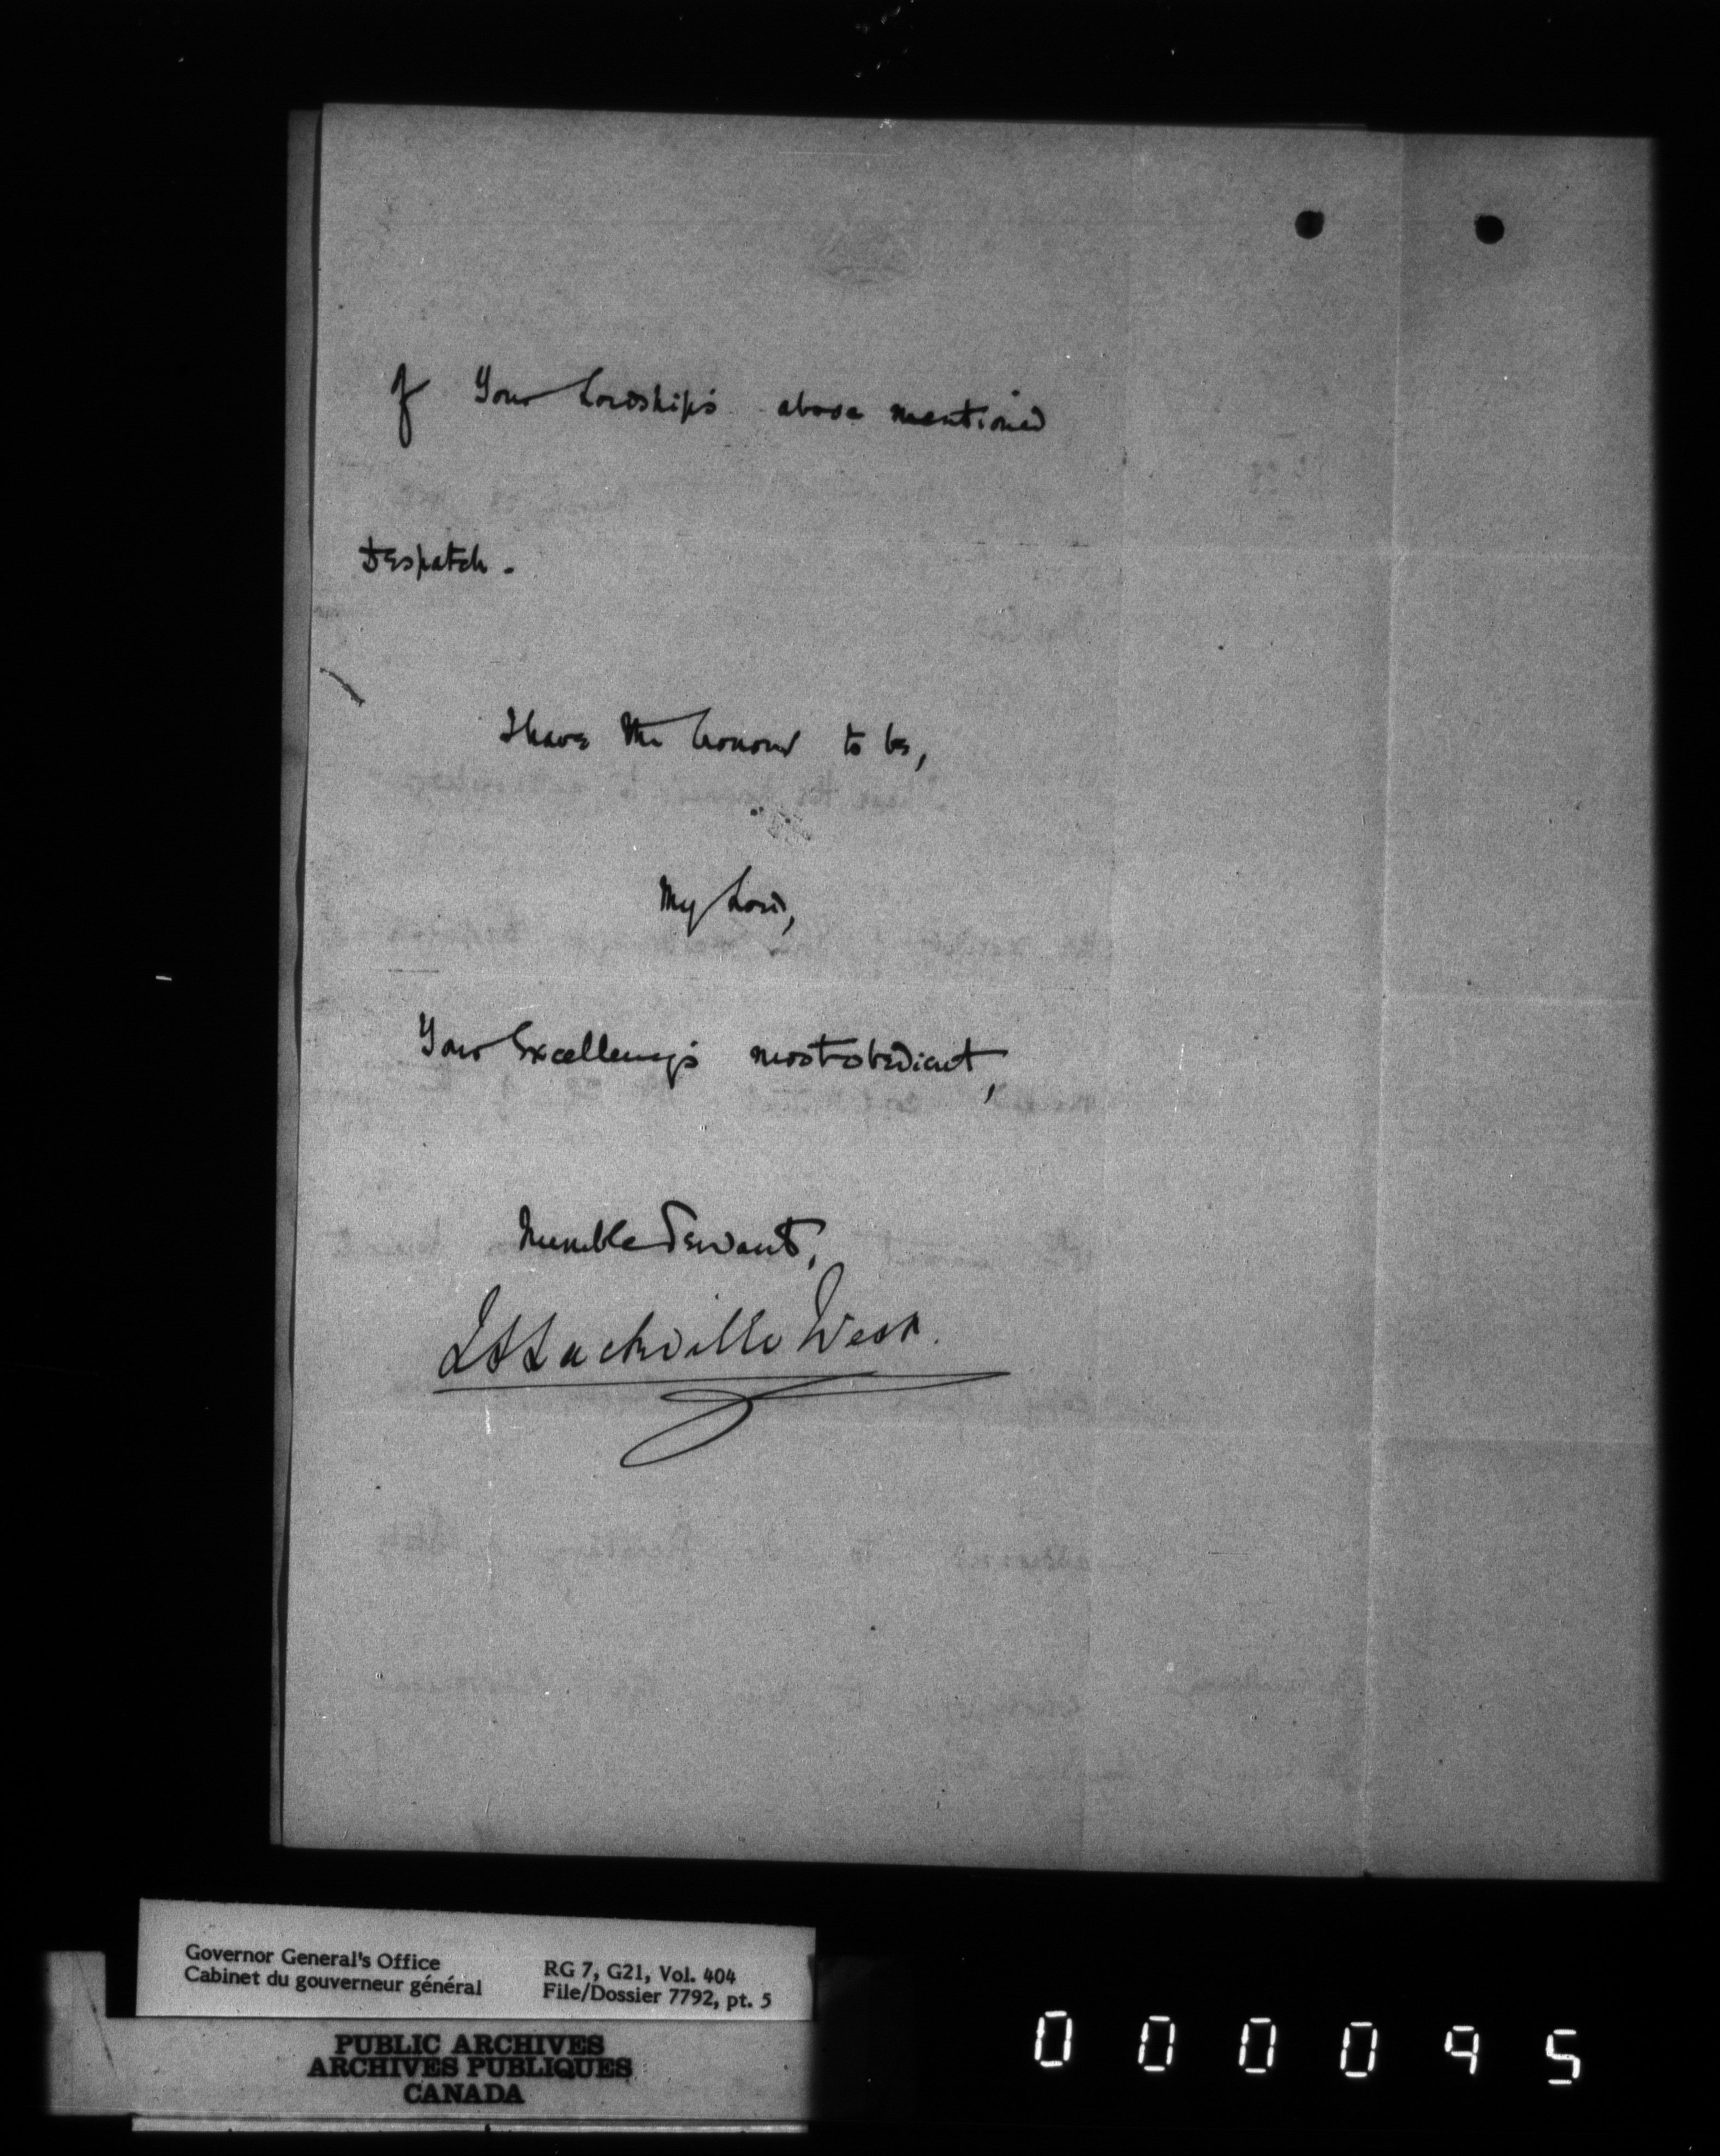 of Your Lordship's above mentioned
Despatch.
I have the honour to be,
My Lord,
Your Excellency's most obedient,
humble Servant,
L S Sackville West.
Governor General's Office
Cabinet du gouverneur général
RG 7, G21, Vol. 404
File/Dossier 7792, pt. 5
PUBLIC ARCHIVES
ARCHIVES PUBLIQUES
CANADA
000095